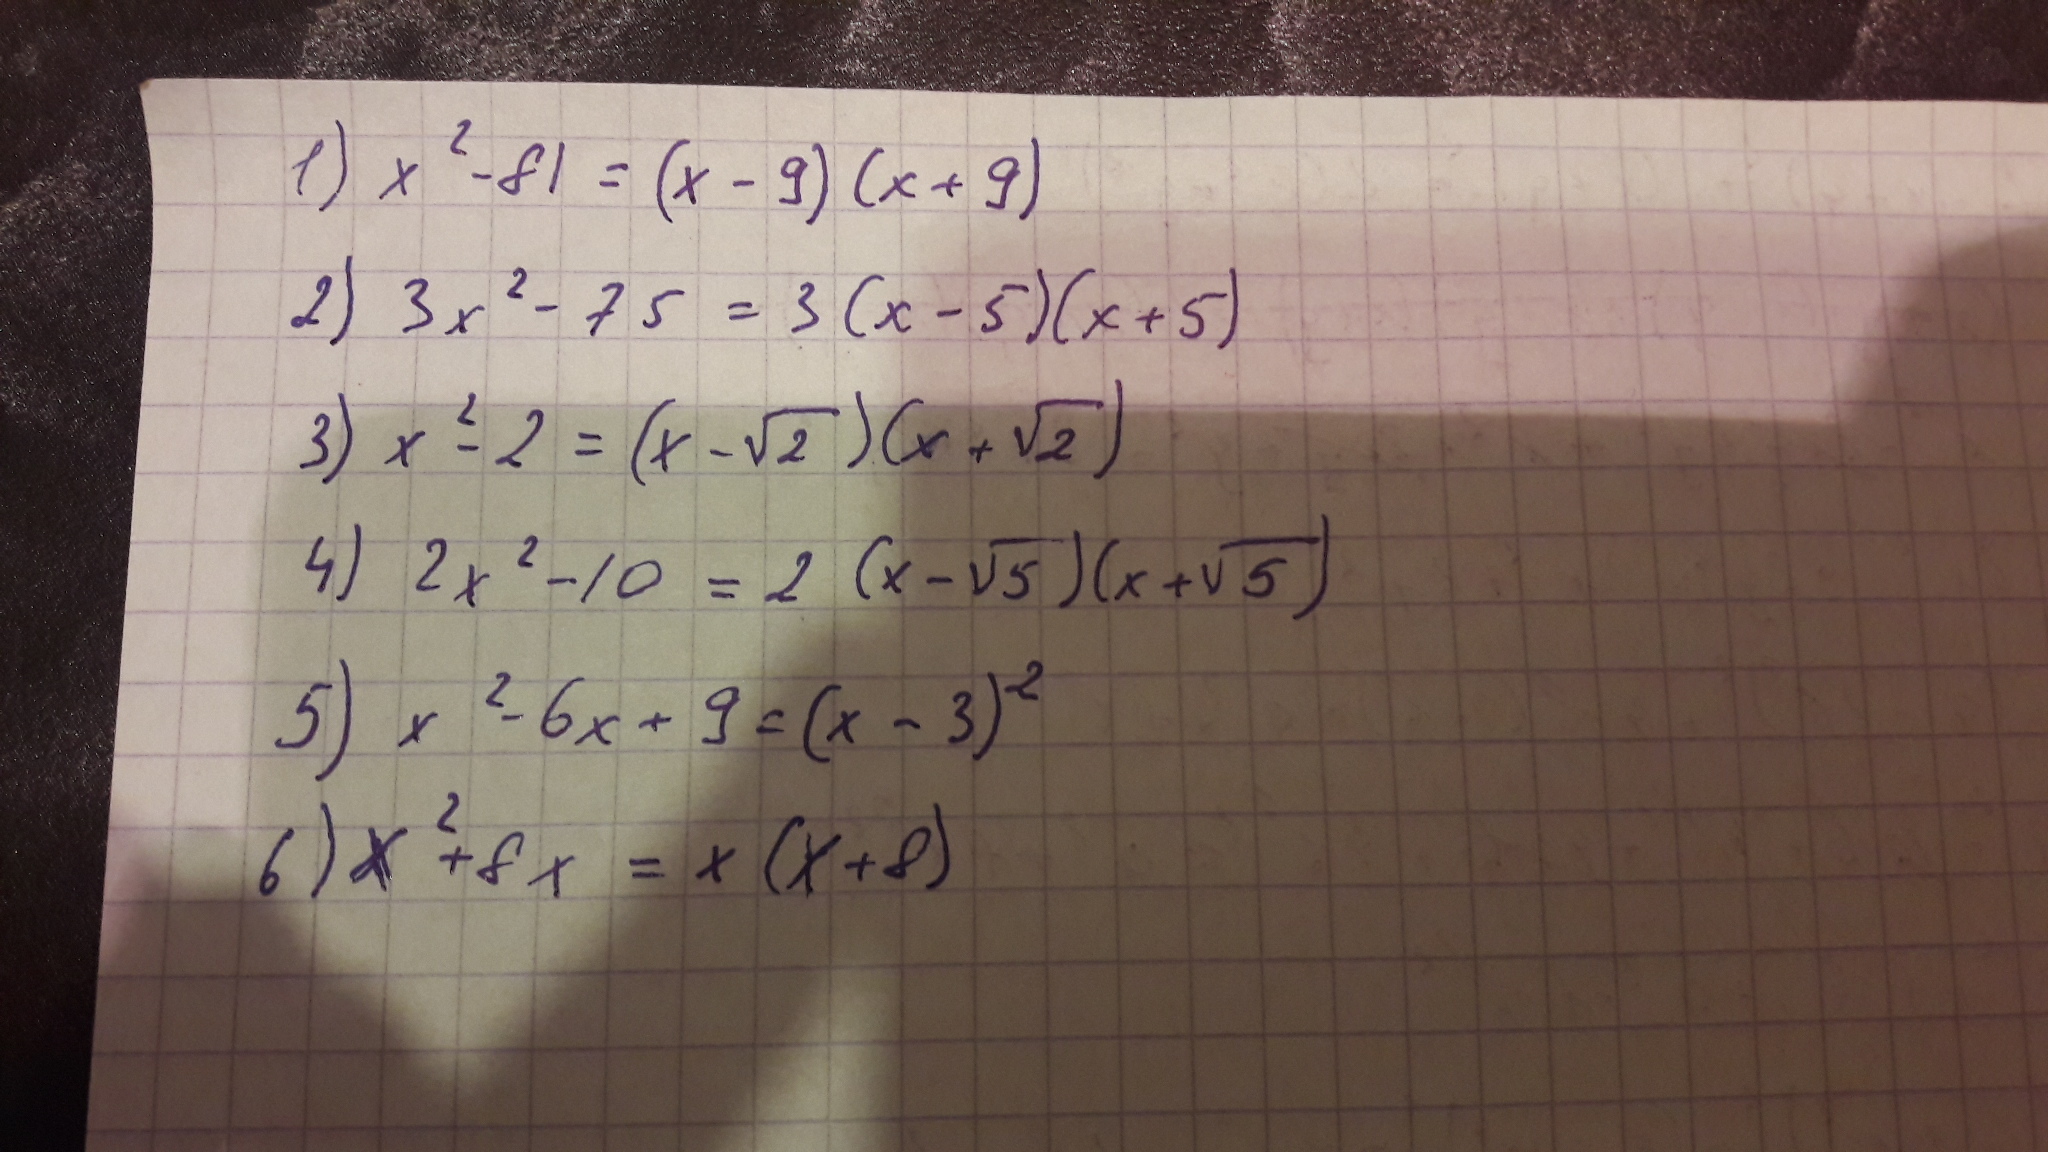 1) x² - 81 = (x - 9) (x + 9)
2) 3x² - 75 = 3 (x - 5)(x + 5)
3) x² - 2 = (x - √2)(x + √2)
4) 2x² - 10 = 2 (x - √5)(x + √5)
5) x² - 6x + 9 = (x - 3)²
6) x² + 8x = x (x + 8)